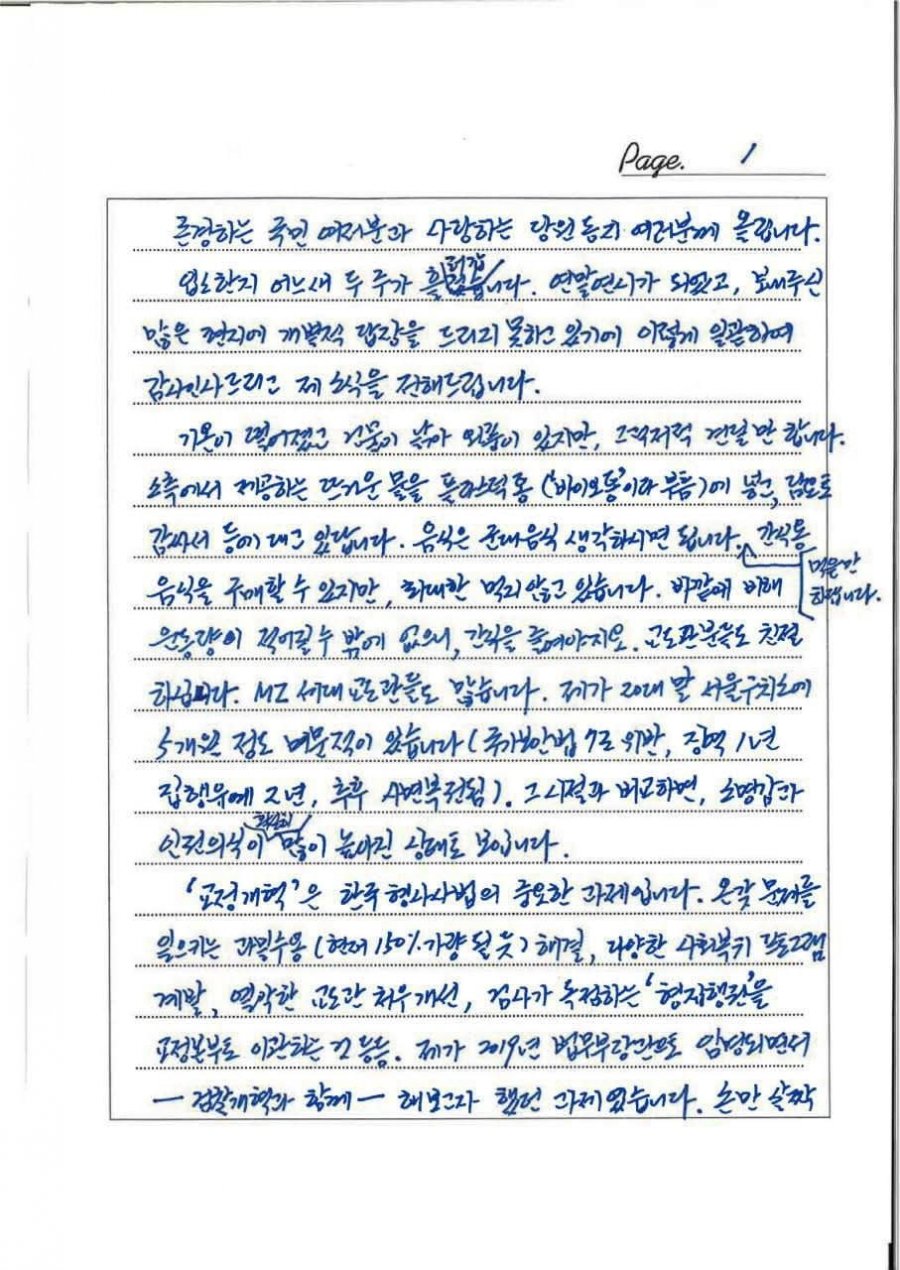 Page. 1
존경하는 국민 여러분과 사랑하는 당원동지 여러분께 올립니다.
입소한지 어느새 두 주가 흘러갔습니다. 연말연시가 되었고, 보내주신
많은 편지에 개별적 답장을 드리지 못하고 있기에 이렇게 일괄하여
감사인사드리고 제 소식을 전해드립니다.
기온이 떨어졌고 건물이 낡아 외풍이 있지만, 그럭저럭 견딜만 합니다.
소측에서 제공하는 뜨거운 물을 플라스틱 통('바이오통'이라 부름)에 넣고, 담요로
감싸서 등에 대고 있답니다. 음식은 군대음식 생각하시면 됩니다. 간식용
먹을만
하답니다.
음식을 구매할 수 있지만, 최대한 먹지 않고 있습니다. 바깥에 비해
운동량이 적어질 수 밖에 없으니, 간식을 줄여야지요. 교도관분들도 친절
하십니다. MZ 세대 교도관들도 많습니다. 제가 20대 말 서울구치소에
5개월 정도 머문적이 있습니다(국가보안법 7조 위반, 징역 1년
집행유예 2년, 추후 사면복권됨). 그 시절과 비교하면, 소명감과
인권의식이 확실히 많이 높아진 상태로 보입니다.
'교정개혁'은 한국 형사사법의 중요한 과제입니다. 온갖 문제를
일으키는 과밀수용(현재 150%가량 될 듯) 해결, 다양한 사회복귀 프로그램
계발, 열악한 교도관 처우개선, 검사가 독점하는 '형집행권'을
교정본부로 이관하는 것 등등. 제가 2019년 법무부장관으로 임명되면서
— 검찰개혁과 함께 — 해보고자 했던 과제였습니다. 손만 살짝